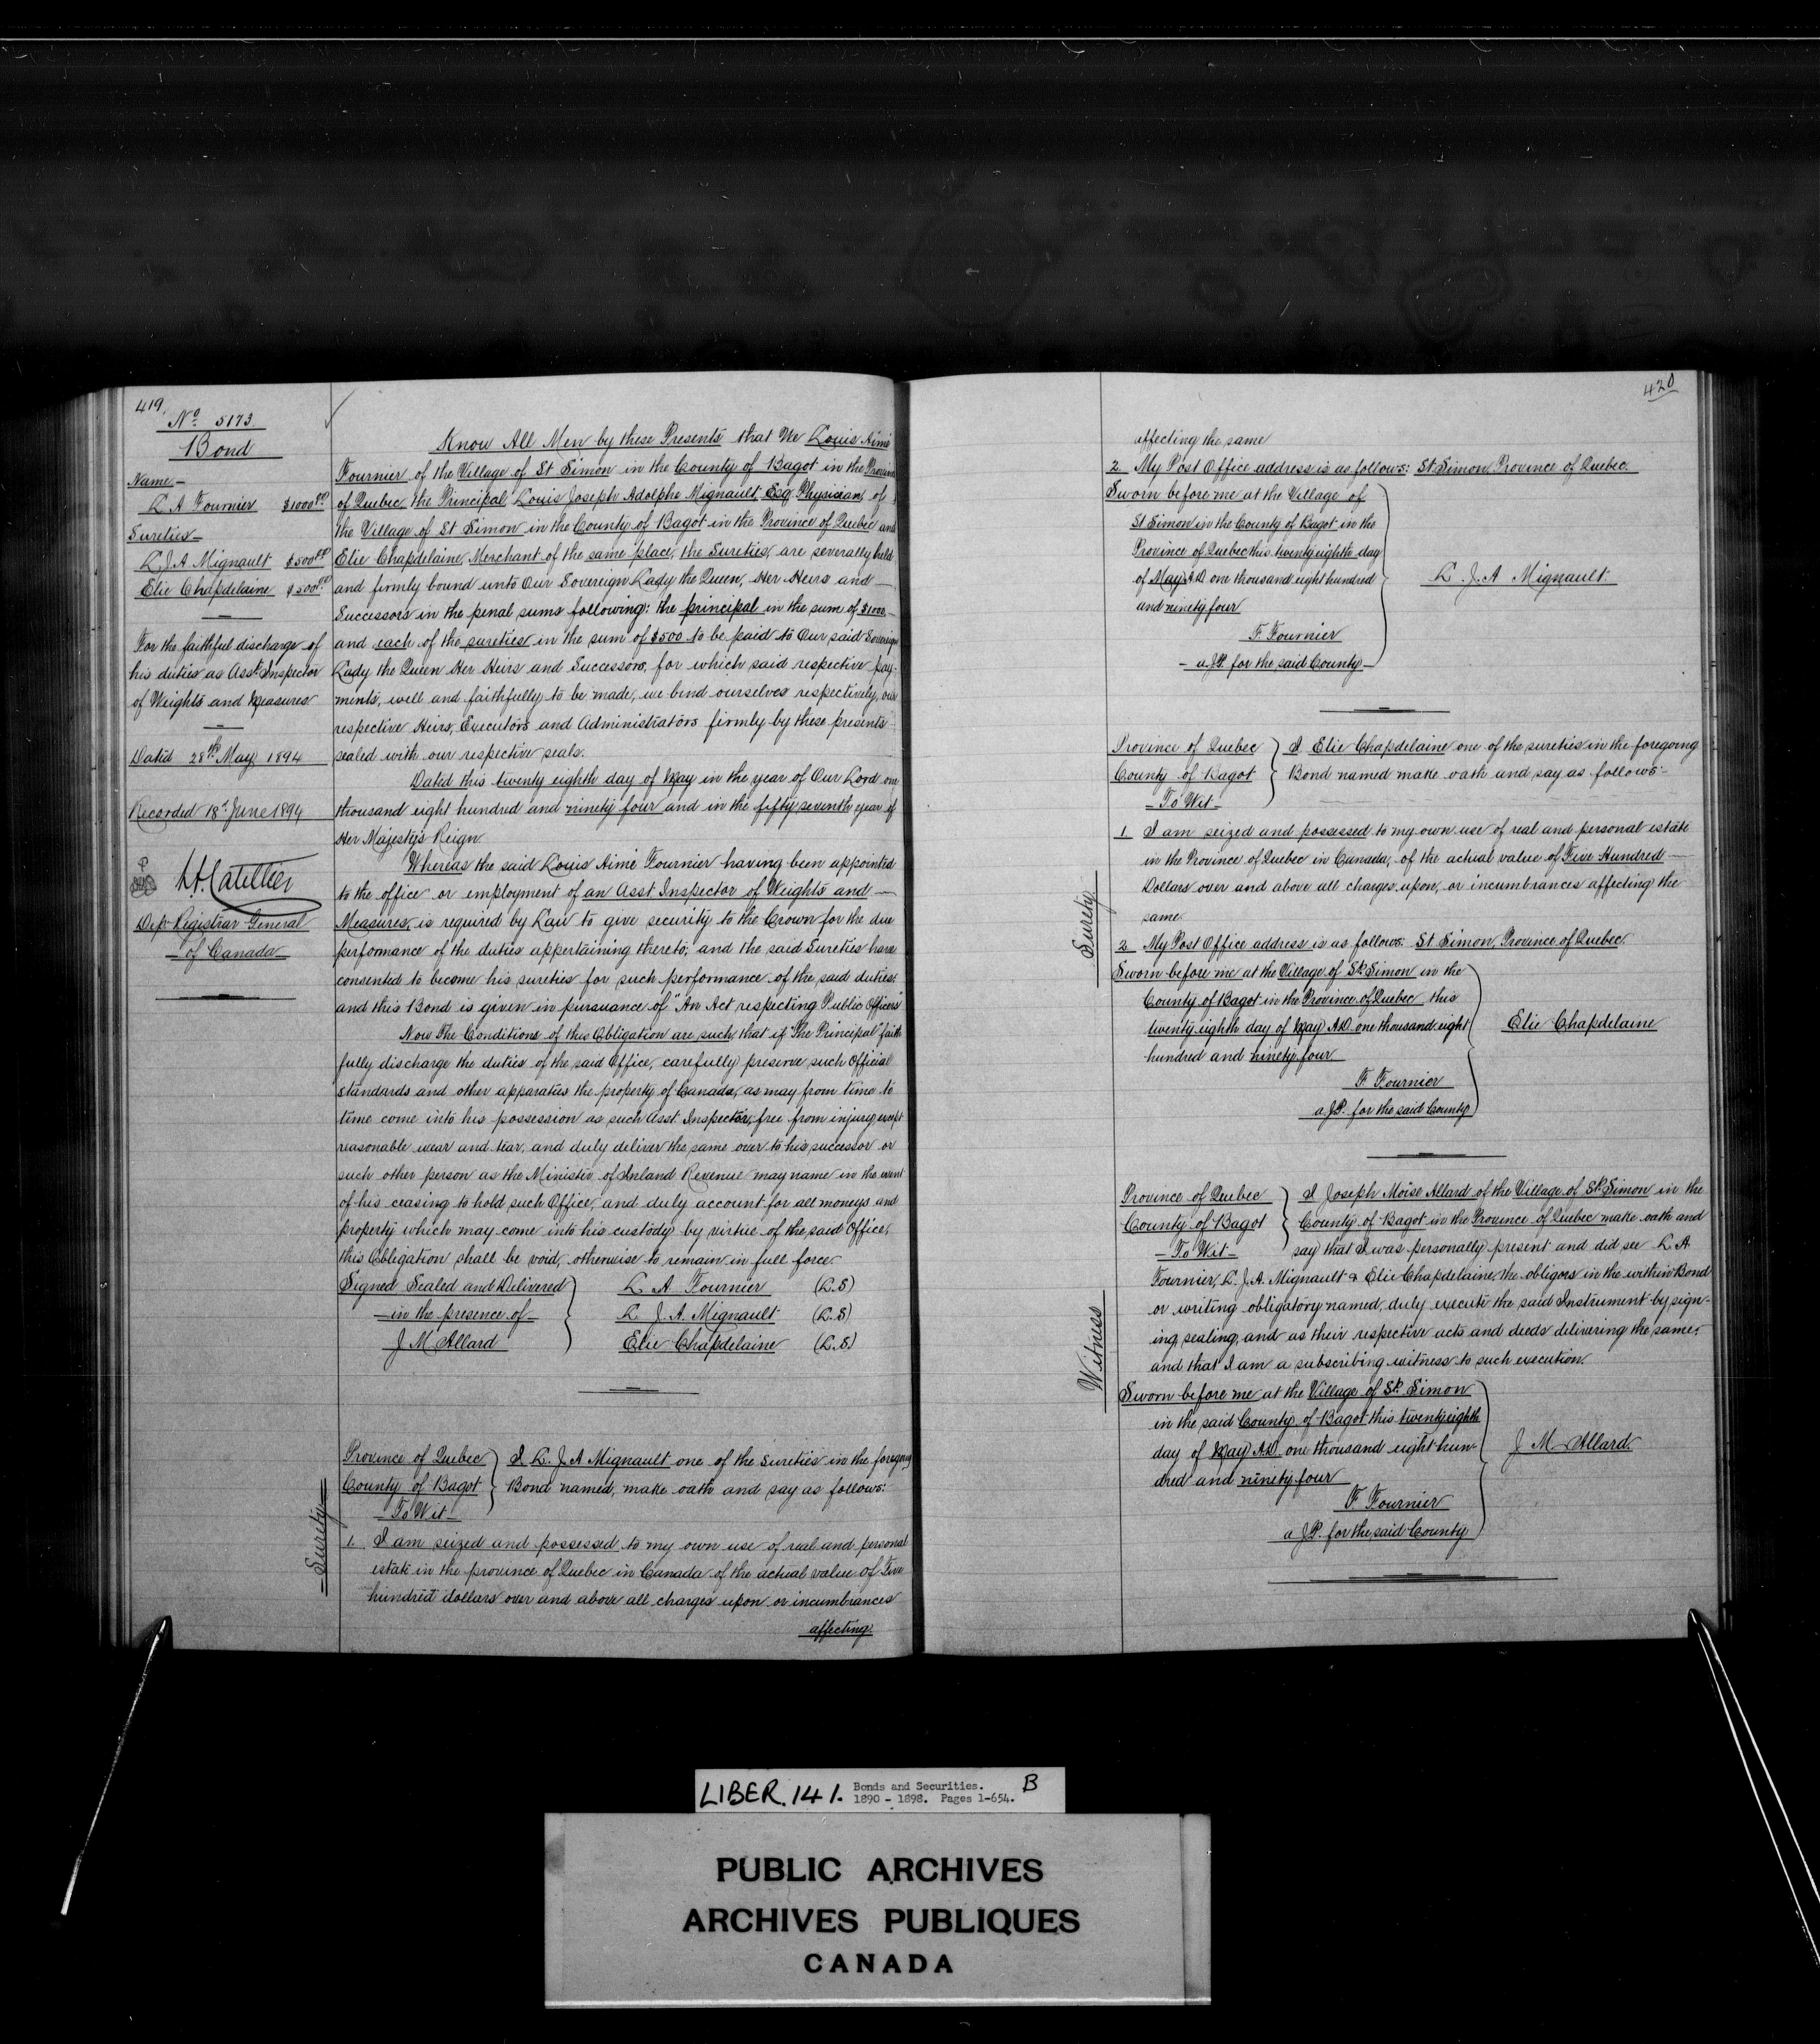 419
No 5173
Bond
Name -
L A Fournier $1000.00
Sureties -
L. J. A Mignault $500.00
Elie Chapdelaine $500.00
For the faithful discharge of
his duties as Asst Inspector
of Weights and Measures
Dated 28th May 1894
Recorded 18th June 1894
Dep Registrar General
of Canada
Know All Men by these Presents that We Louis Aimé
Fournier of the Village of St Simon in the County of Bagot in the Province
of Quebec, the Principal Louis Joseph Adolphe Mignault, Esq Physician, of
the Village of St Simon in the County of Bagot in the Province of Quebec and
Elie Chapdelaine, Merchant of the same place, the Sureties, are severally held
and firmly bound unto Our Sovereign Lady the Queen, Her Heirs and
Successors in the penal sums following: the principal in the sum of $1000
and each of the sureties in the sum of $500 to be paid to Our said Sovereign
Lady the Queen Her Heirs and Successors, for which said respective pay-
ments, well and faithfully to be made, we bind ourselves respectively, our
respective Heirs, Executors and Administrators firmly by these presents
sealed with our respective seals.
Dated this twenty eighth day of May in the year of Our Lord one
thousand eight hundred and ninety four and in the fifty seventh year of
Her Majesty's Reign
Whereas the said Louis Aimé Fournier having been appointed
to the office or employment of an Asst Inspector of Weights and
Measures, is required by Law to give security to the Crown for the due
performance of the duties appertaining thereto; and the said Sureties have
consented to become his sureties for such performance of the said duties.
and this Bond is given in pursuance of "An Act respecting Public Officers"
Now The Conditions of this Obligation are such, that if The Principal faith
fully discharge the duties of the said Office, carefully preserve such Official
standards and other apparatus the property of Canada, as may from time to
time come into his possession as such Asst. Inspector, free from injury except
reasonable wear and tear, and duly deliver the same over to his successor or
such other person as the Minister of Inland Revenue may name in the event
of his ceasing to hold such Office, and duly account for all moneys and
property which may come into his custody by virtue of the said Office,
this Obligation shall be void, otherwise to remain in full force.
Signed Sealed and Delivered L A Fournier (L.S)
in the presence of L J. A. Mignault (L.S)
J M Allard Elie Chapdelaine (L.S.)
Surety
Province of Quebec I L. J. A Mignault one of the Sureties in the foregoing
County of Bagot Bond named, make oath and say as follows:
To Wit
1. I am seized and possessed to my own use of real and personal
estate in the province of Quebec in Canada of the actual value of Five
hundred dollars over and above all charges upon or incumbrances
affecting.
420
affecting the same
2. My Post Office address is as follows: St Simon, Province of Quebec.
Sworn before me at the Village of
St Simon in the County of Bagot in the
Province of Quebec this twenty eighth day
of May A.D. one thousand eight hundred L. J. A Mignault
and ninety four
F. Fournier
- a J.P. for the said County -
Province of Quebec I Elie Chapdelaine one of the sureties in the foregoing
County of Bagot Bond named make oath and say as follows -
- To Wit -
Surety
1 I am seized and possessed to my own use of real and personal estate
in the Province of Quebec in Canada, of the actual value of Five Hundred
Dollars over and above all charges upon, or incumbrances affecting the
same.
2 My Post Office address is as follows: St Simon, Province of Quebec.
Sworn before me at the Village of St Simon in the
County of Bagot in the Province of Quebec this
twenty eighth day of May A.D. one thousand eight Elie Chapdelaine
hundred and ninety four
F. Fournier
a J.P. for the said County
Province of Quebec I Joseph Moïse Allard of the Village of St Simon in the
County of Bagot County of Bagot in the Province of Quebec make oath and
- To Wit - say that I was personally present and did see L A
Witness
Fournier, L. J. A. Mignault & Elie Chapdelaine, the obligors in the within Bond
or writing obligatory named, duly execute the said Instrument by sign-
ing, sealing, and as their respective acts and deeds delivering the same,
and that I am a subscribing witness to such execution.
Sworn before me at the Village of St. Simon
in the said County of Bagot this twenty eighth
day of May A.D. one thousand eight hun- J M Allard
dred and ninety four
F. Fournier
a J.P. for the said County
LIBER. 141. Bonds and Securities. B
1890 - 1898. Pages 1-654.
PUBLIC ARCHIVES
ARCHIVES PUBLIQUES
CANADA